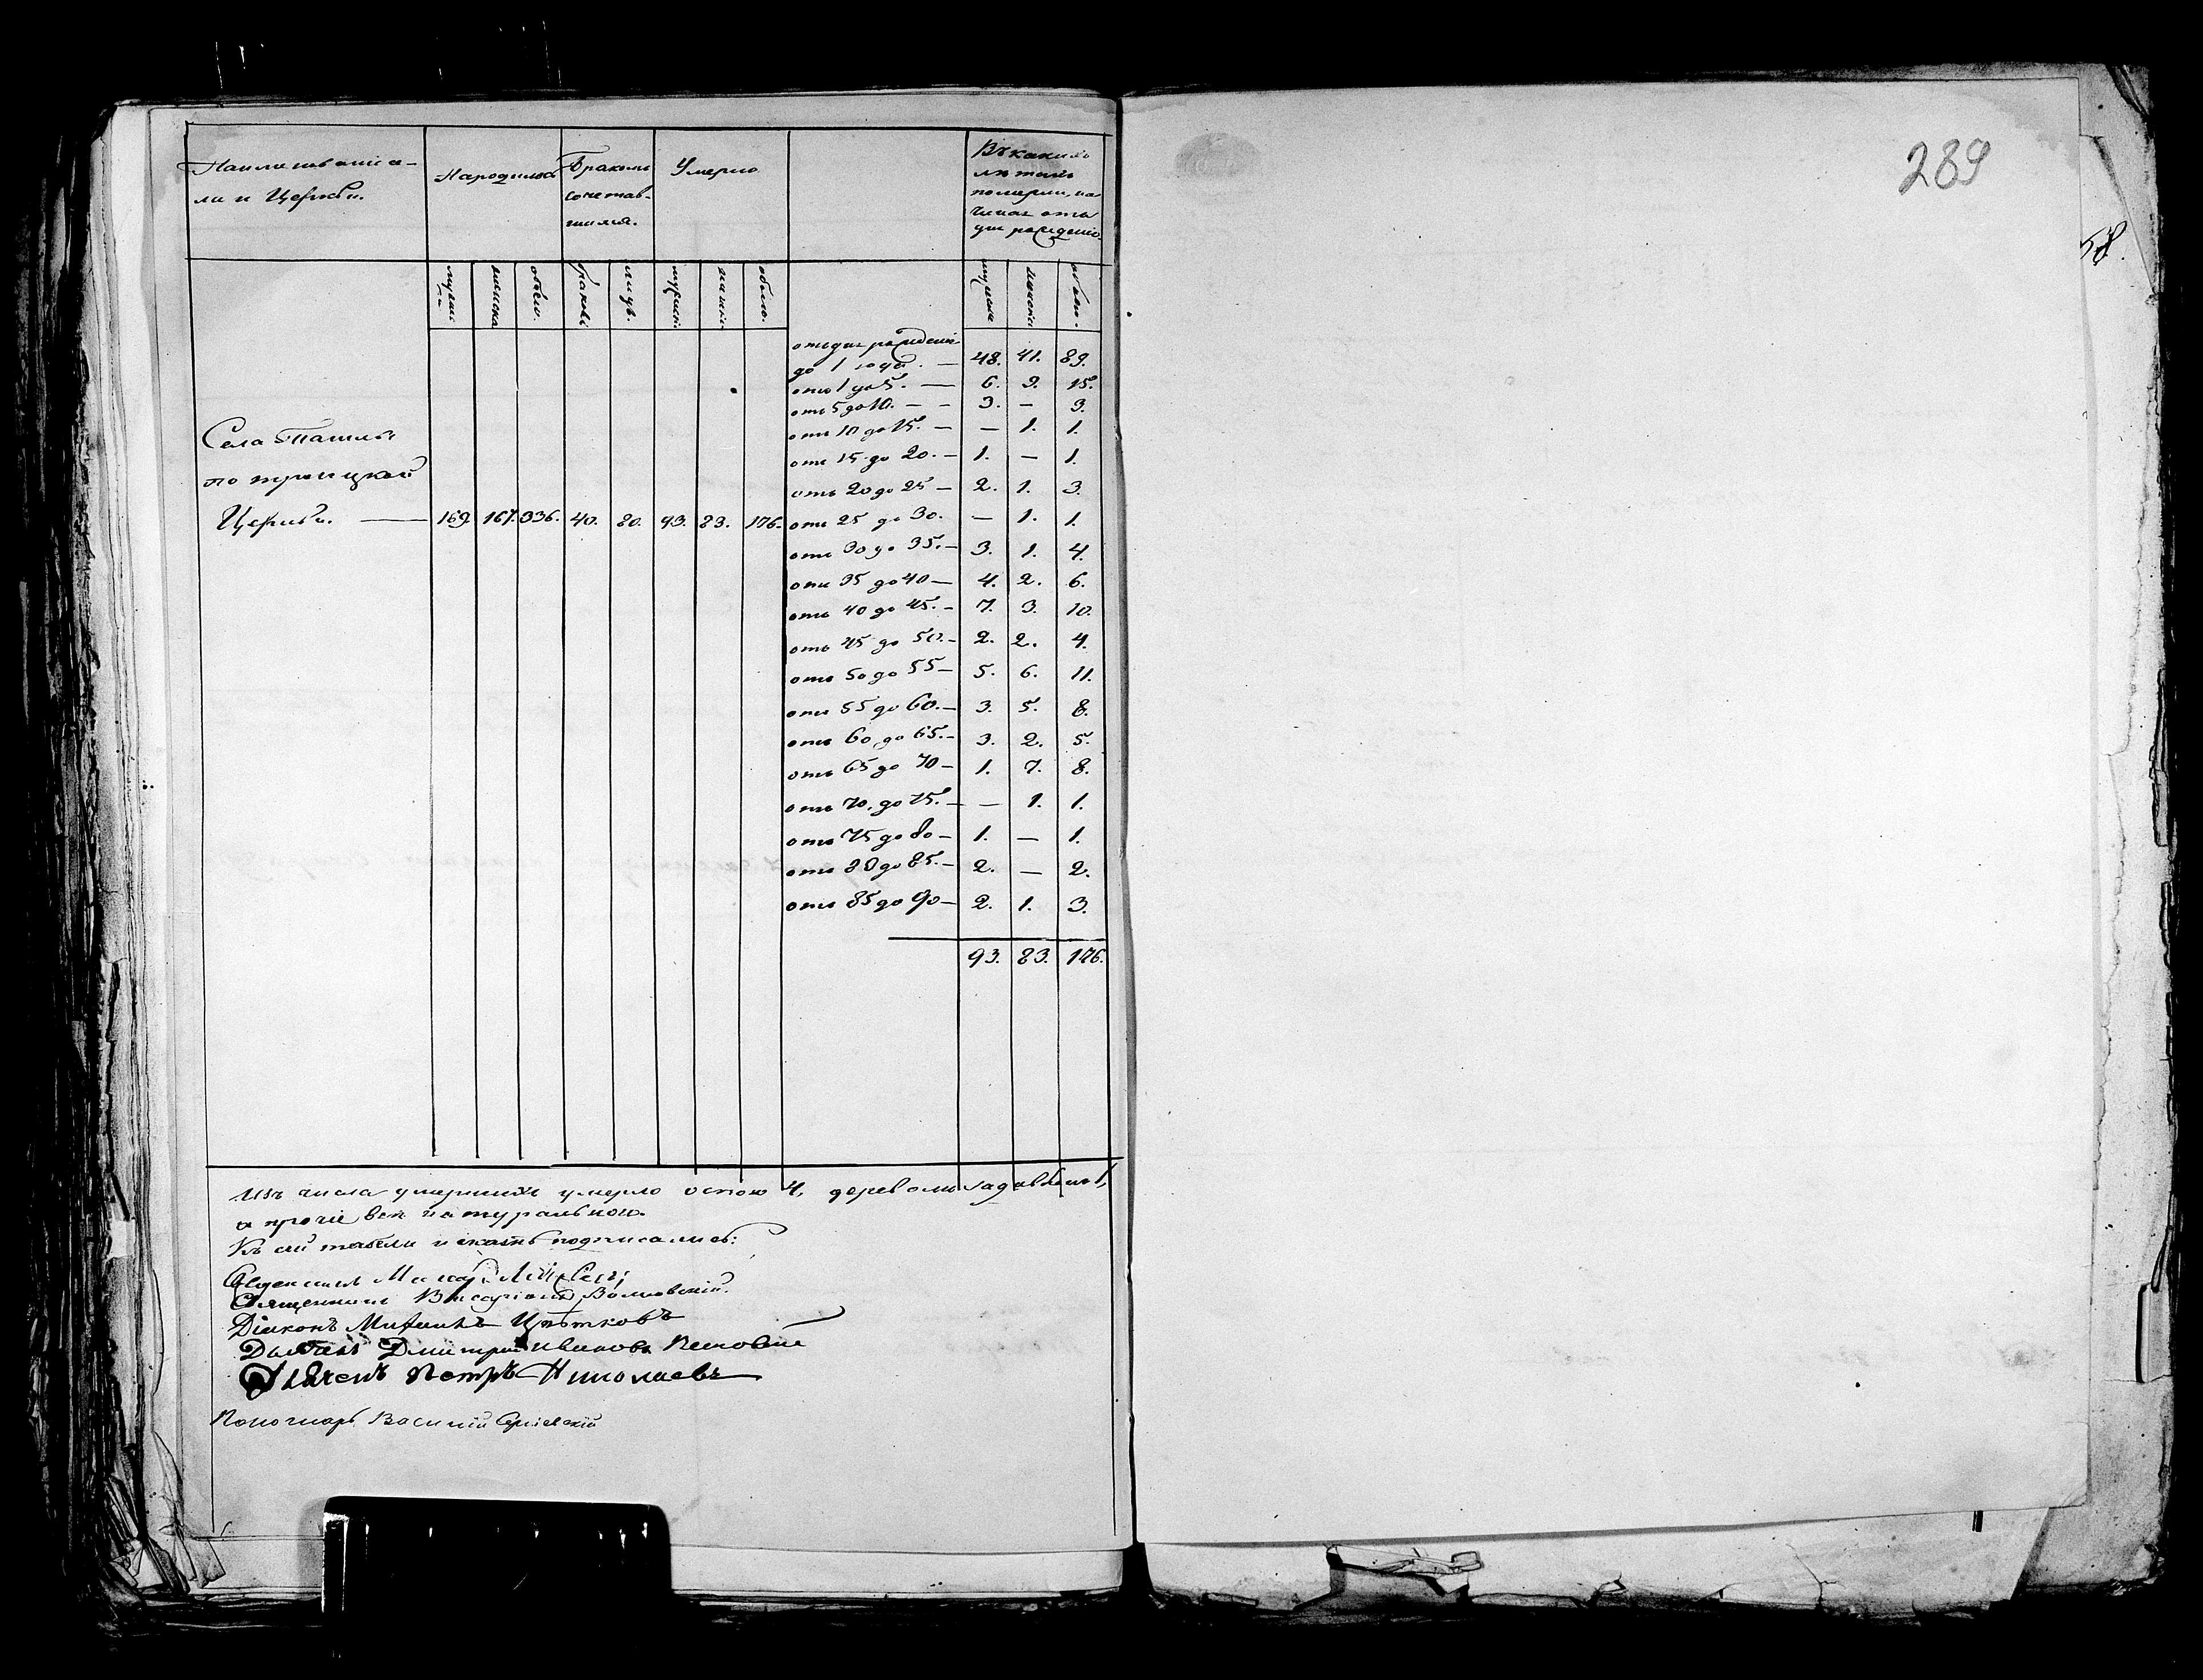 Наименованіе се-
ла и Церкви.
Народилось
Бракомъ
сочетав-
шихся.
Умерло
Въ какихъ
лѣтахъ
померли, на-
чиная отъ
дня рожденія.
мужеска
женска
обоего.
браковъ
лицъ.
мужеска
женска
обоего.
мужеска
женска
обоего.
отъ дня рожденія
до 1 года. — 48. 41. 89.
отъ 1 до 5. — 6. 9. 15.
отъ 5 до 10. — — 3. — 3.
отъ 10 до 15. — — 1. 1.
отъ 15 до 20. — 1. — 1.
отъ 20 до 25 — 2. 1. 3.
Села Ташлы
по троицкой
Церкви. — 169. 167. 336. 40. 80. 93. 83. 176. отъ 25 до 30. — 1. 1.
отъ 30 до 35. — 3. 1. 4.
отъ 35 до 40 — 4. 2. 6.
отъ 40 до 45. — 7. 3. 10.
отъ 45 до 50. — 2. 2. 4.
отъ 50 до 55 — 5. 6. 11.
отъ 55 до 60. — 3. 5. 8.
отъ 60 до 65. — 3. 2. 5.
отъ 65 до 70 — 1. 7. 8.
отъ 70. до 75. — — 1. 1.
отъ 75 до 80 — 1. — 1.
отъ 80 до 85. — 2. — 2.
отъ 85 до 90 — 2. 1. 3.
93. 83. 176.
Изъ числа умершихъ умерло оспою 4, деревомъ задавлено 1,
а прочіе всѣ натуральною.
Къ сей табели и скаскѣ подписались:
Священникъ
Священникъ Висаріонъ Волковскій.
Діаконъ Михаилъ Цвѣтковъ
Дьячекъ Дмитрій Ивановъ
Дьячекъ Петръ Николаевъ
Пономарь Василій Сергіевскій
289
58.